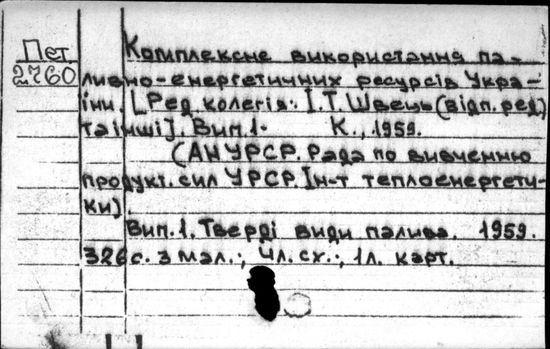 Пет.
2760
Комплексне використання па-
ливно-енергетичних ресурсів Укра-
їни. [Ред. колегія: І.Т. Швець (відп. ред.)
та інші]. Вип. 1- К., 1959.
(АН УРСР. Рада по вивченню
продукт. сил УРСР. Ін-т теплоенергети-
ки).
Вип. 1. Тверді види палива. 1959.
326 с. з мал.; 4 л. сх.; 1 л. карт.